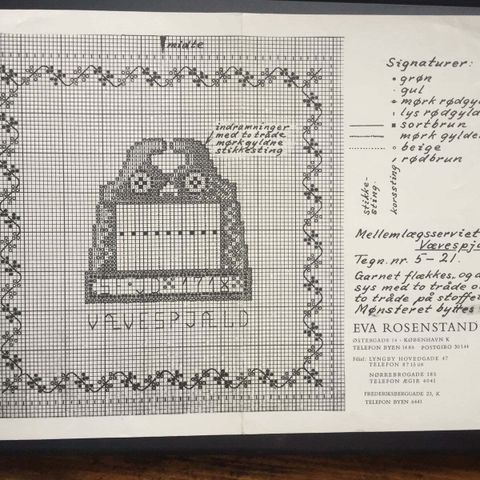 midte
indramninger
med to tråde
mørk gyldne
stikkesting
1748
VÆVESPJÆLD
Signaturer:
grøn
gul
mørk rødgyld
lys rødgyld
sortbrun
mørk gylden
beige
rødbrun
stikke-
sting
korssting
Mellemlægsserviet
Vævespj
Tegn. nr. 5-21.
Garnet flækkes, og d
sys med to tråde o
to tråde på stoffe
Mønsteret byttes
EVA ROSENSTAND
ØSTERGADE 14 - KØBENHAVN K
TELEFON BYEN
POSTGIRO
Filial: LYNGBY HOVEDGADE 47
TELEFON 87 15 08
NØRREBROGADE 185
TELEFON ÆGIR 6041
FREDERIKSBERGGADE 23, K
TELEFON BYEN 6445